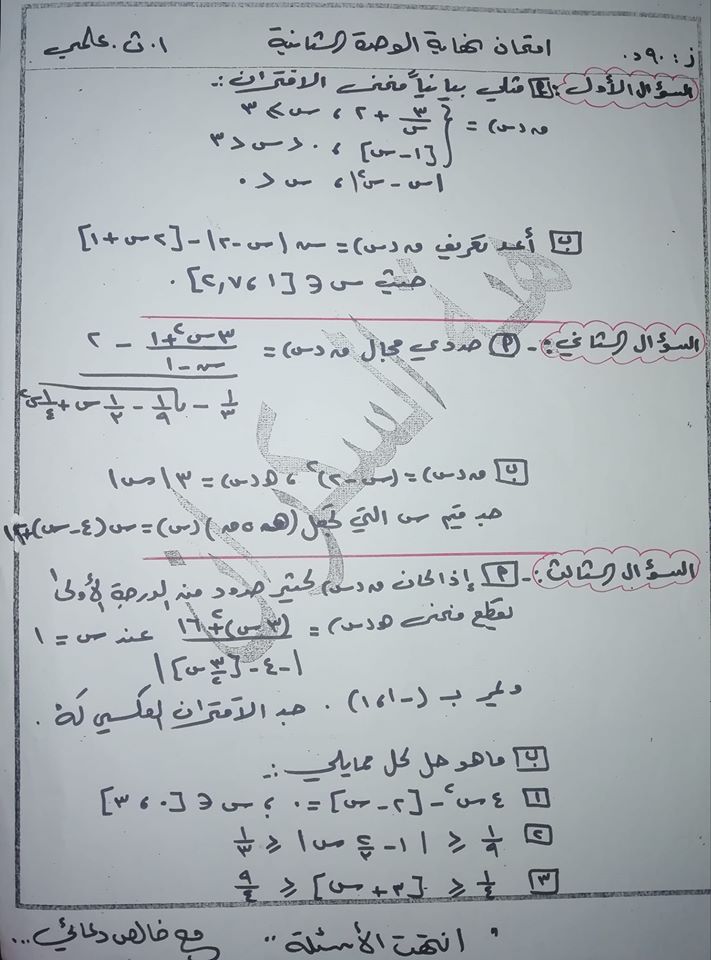 ز: ٩٠ د. امتحان نهاية الوحدة الثانية ١. ث. علمي
السؤال الأول: أ مثلي بيانياً منحنى الاقتران :-
ق(س) = { ٣/س + ٢ ، س ≥ ٣
[١ - س] ، ٠ < س < ٣
|س - س٢| ، س < ٠
ب أعد تعريف ق(س) = س |س - ٢| - [٢س + ١]
حيث س ∈ [١ ، ٢,٧] .
السؤال الثاني :- أ حددي مجال ق(س) = (٣س٢ + ١)/(س - ١) - ٢
١/٣ - √(١/٩ - ١/٢ س + ١/٤ س٢)
ب ق(س) = (س - ٢)٢ ، هـ(س) = ٣|س|
جد قيم س التي تجعل (هـ ∘ ق)(س) = س(٤ - س) + ١٢
السؤال الثالث :- أ إذا كان ق(س) كثير حدود من الدرجة الأولى
يقطع منحنى هـ(س) = ((٣س)٢ + ١٦)/ عند س = ١
|-٤ - [٣/٢ س]|
ويمر ب (-١ ، ١) . جد الاقتران العكسي له .
ب ما هو حل كل مما يلي :-
١ ٤س٢ - [٢ - س] = ٠ ، س ∈ [٠ ، ٣]
٢ ١/٩ ≤ |١ - ٢/٢ س| ≤ ١/٣
٣ ١/٤ ≤ [٣ + س] ≤ ٩/٤
" انتهت الأسئلة " مع خالص دعائي ...